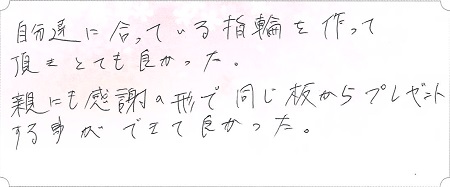 自分達に合っている指輪を作って
頂きとても良かった。
親にも感謝の形で同じ板からプレゼント
する事ができて良かった。